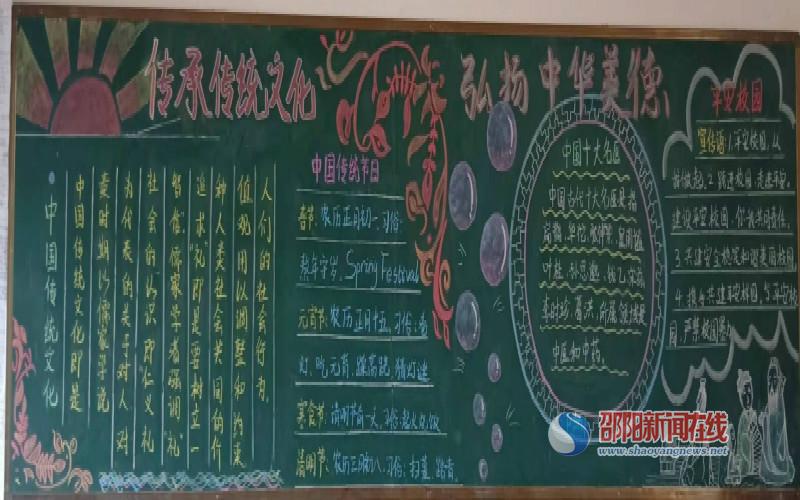 传承传统文化
弘扬中华美德
中国传统文化
中国传统文化即是
春时期以儒家学说
为代表的类乎对人、对
社会的认识即“仁义礼
智信”儒家学者强调“礼”
追求“礼”即是要树立一
种人类社会共同的行
值观用以调整和约束
人们的社会行为。
中国传统节日
春节:农历正月初一,习俗:
熬年守岁。Spring Festival
元宵节:农历正月十五,习俗:赏
灯、吃元宵、踩高跷、猜灯谜
寒食节:清明节前一天,习俗:
清明节:农历三月初八,习俗:扫墓、踏青。
中国十大名医
中国古代十大名医是指
扁鹊、华佗、张仲景、皇甫谧
叶桂、孙思邈、钱乙、
李时珍、葛洪、所属领域
中医和中药。
平安校园
宣传语:1.平安校园,从
2.踏进校园,走进平安。
建设平安校园,你我共同责任。
3.共建安全
4.携手共建平安校园。5.平安校
园,严禁
邵阳新闻在线
www.shaoyangnews.net